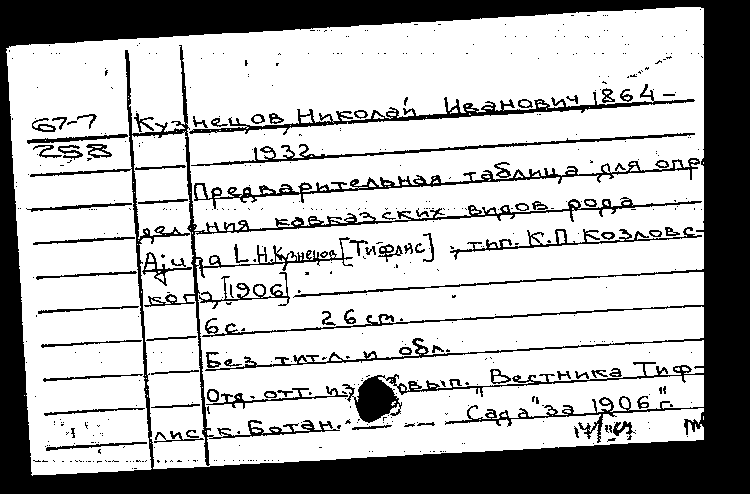 67-7 Кузнецов, Николай Иванович, 1864-
258 1932.
Предварительная таблица для опре
деления кавказских видов рода
Ajuga L. Н. Кузнецов [Тифлис], тип. К.П. Козловс-
кого, [1906].
6 с. 26 cm.
Без тит. л. и обл.
Отд. отт. из вып. "Вестника Тиф-
лисск. Ботан. Сада" за 1906 г.